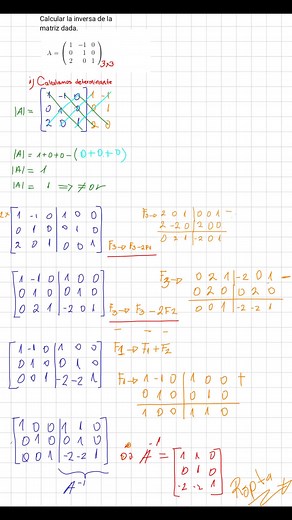 Calcular la inversa de la
matriz dada.
A = ( 1 -1 0
0 1 0
2 0 1 ) 3x3
i) Calculamos determinante
|A| = [ 1 -1 0 | 1 -1
0 1 0 | 0 1
2 0 1 | 2 0
|A| = 1+0+0-(0+0+0)
|A| = 1
|A| = 1 => ≠0✓
[ 1 -1 0 | 1 0 0
0 1 0 | 0 1 0
2 0 1 | 0 0 1 ] F3→F3-2F1
F3→ 2 0 1 | 0 0 1 -
2 -2 0 | 2 0 0
0 2 1 | -2 0 1
[ 1 -1 0 | 1 0 0
0 1 0 | 0 1 0
0 2 1 | -2 0 1 ] F3→F3-2F2
F3→ 0 2 1 | -2 0 1 -
0 2 0 | 0 2 0
0 0 1 | -2 -2 1
[ 1 -1 0 | 1 0 0
0 1 0 | 0 1 0
0 0 1 | -2 -2 1 ]
F1→F1+F2
F1→ 1 -1 0 | 1 0 0 +
0 1 0 | 0 1 0
1 0 0 | 1 1 0
[ 1 0 0 | 1 1 0
0 1 0 | 0 1 0
0 0 1 | -2 -2 1 ]
A⁻¹
A⁻¹ = [ 1 1 0
0 1 0
-2 -2 1 ]
Rpta